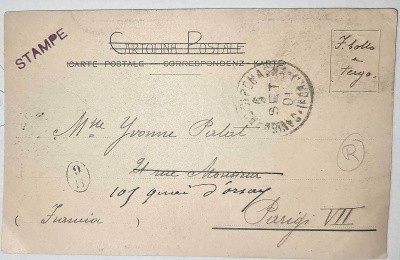 STAMPE
CARTOLINA POSTALE
CARTE POSTALE – CORRESPONDENZ-KARTE
Il bollo
a
tergo.
6
SET
01
Mlle Yvonne Palat
21 rue Monsieur
105 quai d'orsay
Parigi VII
(Francia)
9
11
R